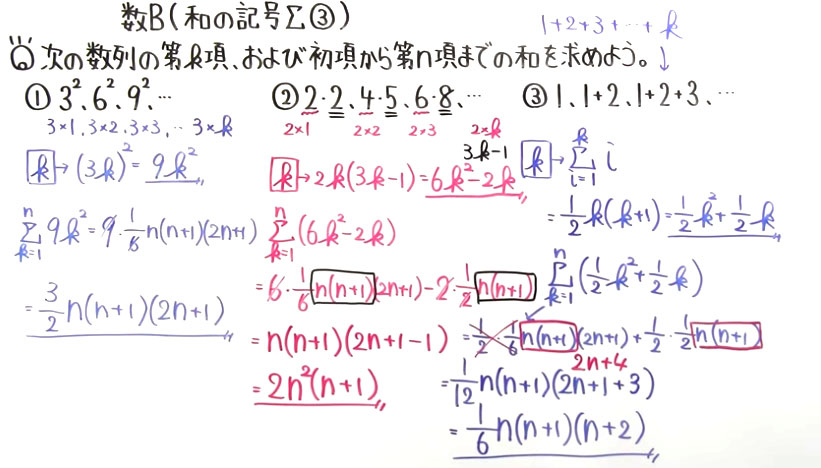 数B(和の記号Σ③)
1+2+3+…+k
次の数列の第k項、および初項から第n項までの和を求めよう。↓
① 3²、6²、9²、…
3×1、3×2、3×3、… 3×k
[k]→(3k)²=9k²
Σ[k=1→n] 9k²=9・1/6 n(n+1)(2n+1)
=3/2 n(n+1)(2n+1)
② 2・2、4・5、6・8、…
2×1 2×2 2×3 2×k
3k-1
[k]→2k(3k-1)=6k²-2k
Σ[k=1→n] (6k²-2k)
=6・1/6 n(n+1)(2n+1)-2・1/2 n(n+1)
=n(n+1)(2n+1-1)
=2n²(n+1)
③ 1、1+2、1+2+3、…
[k]→Σ[i=1→k] i
=1/2 k(k+1)=1/2 k²+1/2 k
Σ[k=1→n] (1/2 k²+1/2 k)
=1/2・1/6 n(n+1)(2n+1)+1/2・1/2 n(n+1)
2n+4
=1/12 n(n+1)(2n+1+3)
=1/6 n(n+1)(n+2)